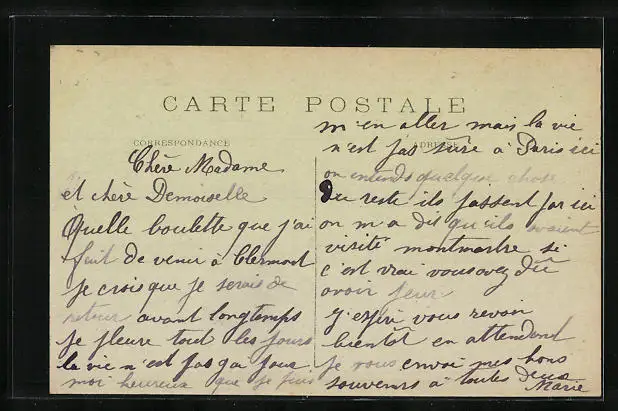 CARTE POSTALE
CORRESPONDANCE
Chère Madame
et chère Demoiselle
Quelle boulette que j'ai
fait de venir à Clermont
Je crois que je serais de
retour avant longtemps
Je pleure tout les jours
la vie n'est pas gai pour
moi heureux que je puis
ADRESSE
m'en aller mais la vie
n'est pas sure à Paris ici
on entends quelque chose
Du reste ils passent par ici
on m'a dit qu'ils avaient
visité montmartre si
c'est vrai vous avez dû
avoir peur
J'espère vous revoir
bientôt en attendant
Je vous envoi mes bons
souvenirs à toutes deux
Marie